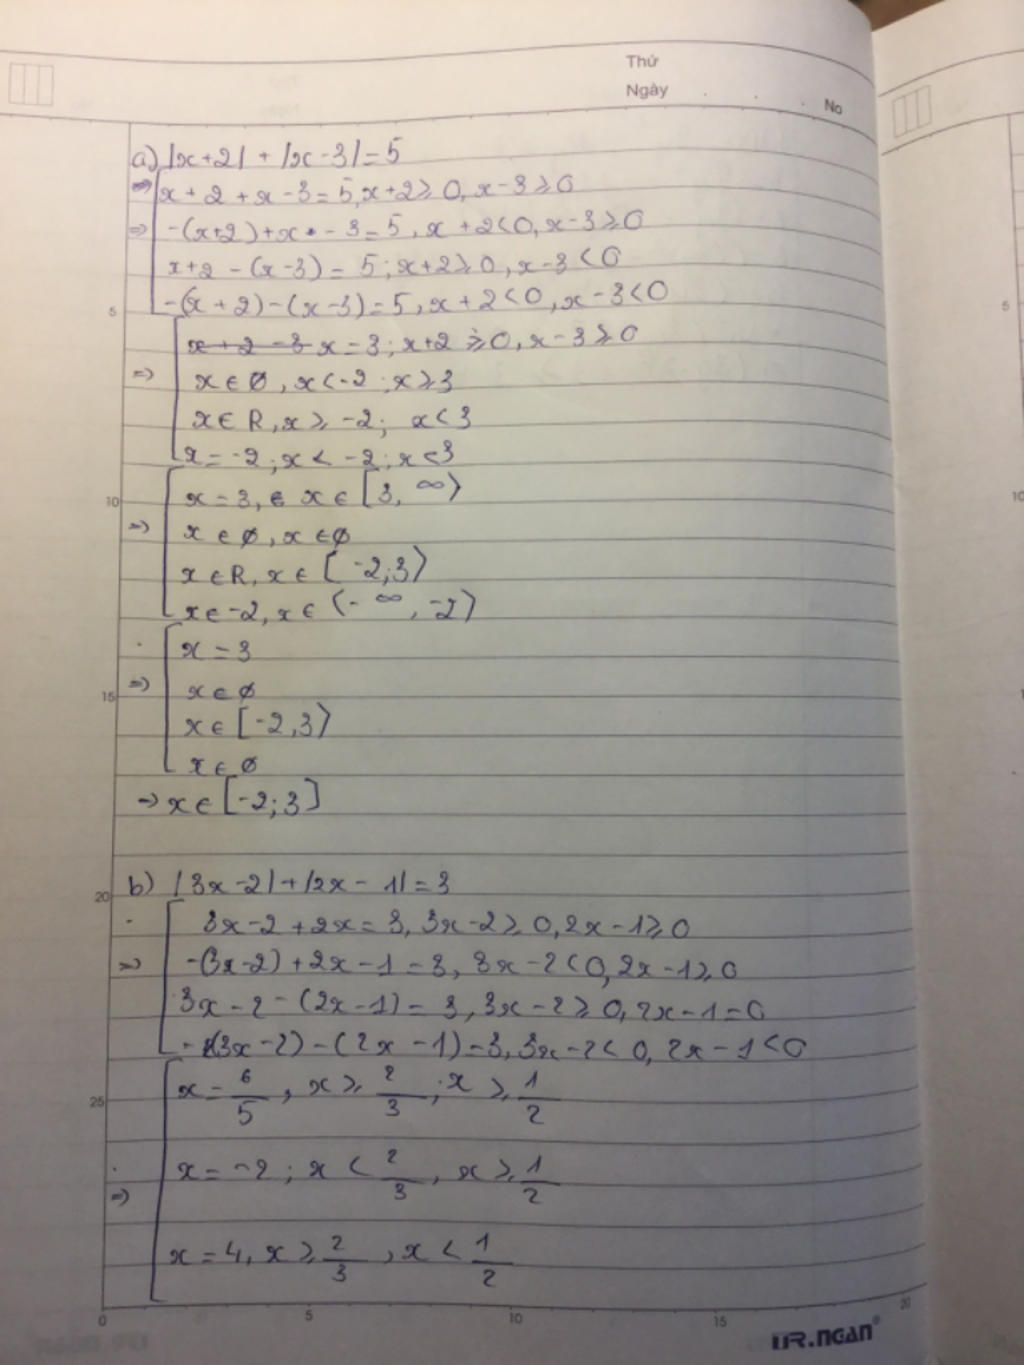 Thứ
Ngày
No
a) |x+2| + |x-3| = 5
=> x+2+x-3=5, x+2≥0, x-3≥0
=> -(x+2)+x-3=5, x+2<0, x-3≥0
x+2-(x-3)=5; x+2≥0, x-3<0
-(x+2)-(x-3)=5, x+2<0, x-3<0
x+2-3 x=3; x+2≥0, x-3≥0
=> x∈∅, x<-2; x≥3
x∈R, x≥-2; x<3
x=-2; x<-2; x<3
x=3, e x∈[3, ∞)
=> x∈∅, x∈∅
x∈R, x∈[-2;3)
x∈-2, x∈(-∞, -2)
x=3
=> x∈∅
x∈[-2,3)
x∈∅
=> x∈[-2;3]
b) |3x-2|+|2x-1|=3
3x-2+2x=3, 3x-2≥0, 2x-1≥0
=> -(3x-2)+2x-1=3, 3x-2<0, 2x-1≥0
3x-2-(2x-1)=3, 3x-2≥0, 2x-1=0
-(3x-2)-(2x-1)=3, 3x-2<0, 2x-1<0
x=6/5, x≥2/3; x≥1/2
=> x=-2; x<2/3, x≥1/2
x=4, x≥2/3, x<1/2
5
10
15
20
25
0 5 10 15 20
UR.nGAn
5
10